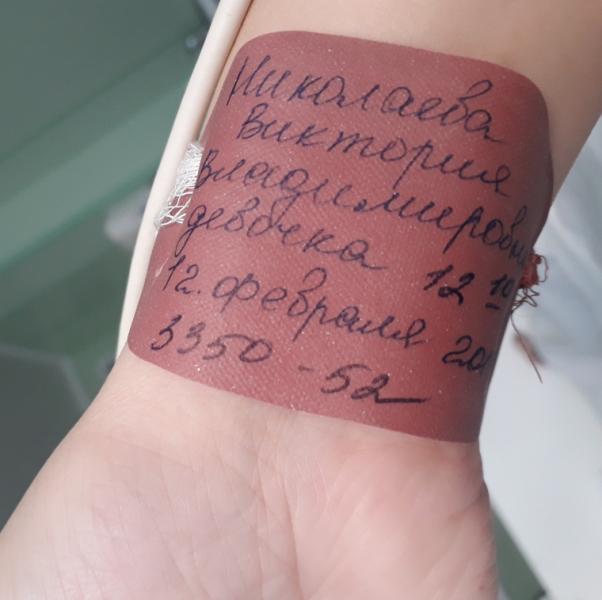 Николаева
Виктория
Владимировн
девочка 12 10
12. февраля 20
3350 - 52